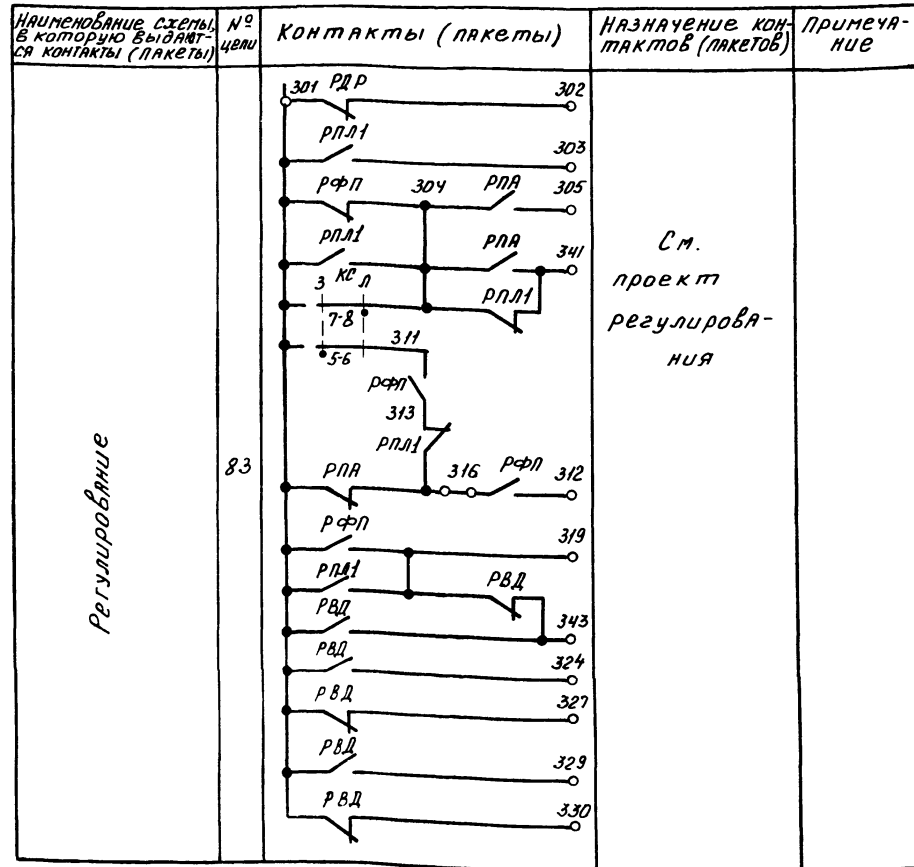 Наименование схемы,
в которую выдают-
ся контакты (пакеты)
№
цепи
Контакты (пакеты)
Назначение кон-
тактов (пакетов)
Примеча-
ние
301 РДР 302
РПЛ1 303
РФП 304 РПА 305
РПЛ1 РПА 341
КС
З Л РПЛ1
7-8
311
5-6
РФП
313
РПЛ1
РПА 316 РФП 312
РФП 319
РПЛ1 РВД
РВД 343
РВД 324
РВД 327
РВД 329
РВД 330
Регулирование
83
См.
проект
регулирова-
ния